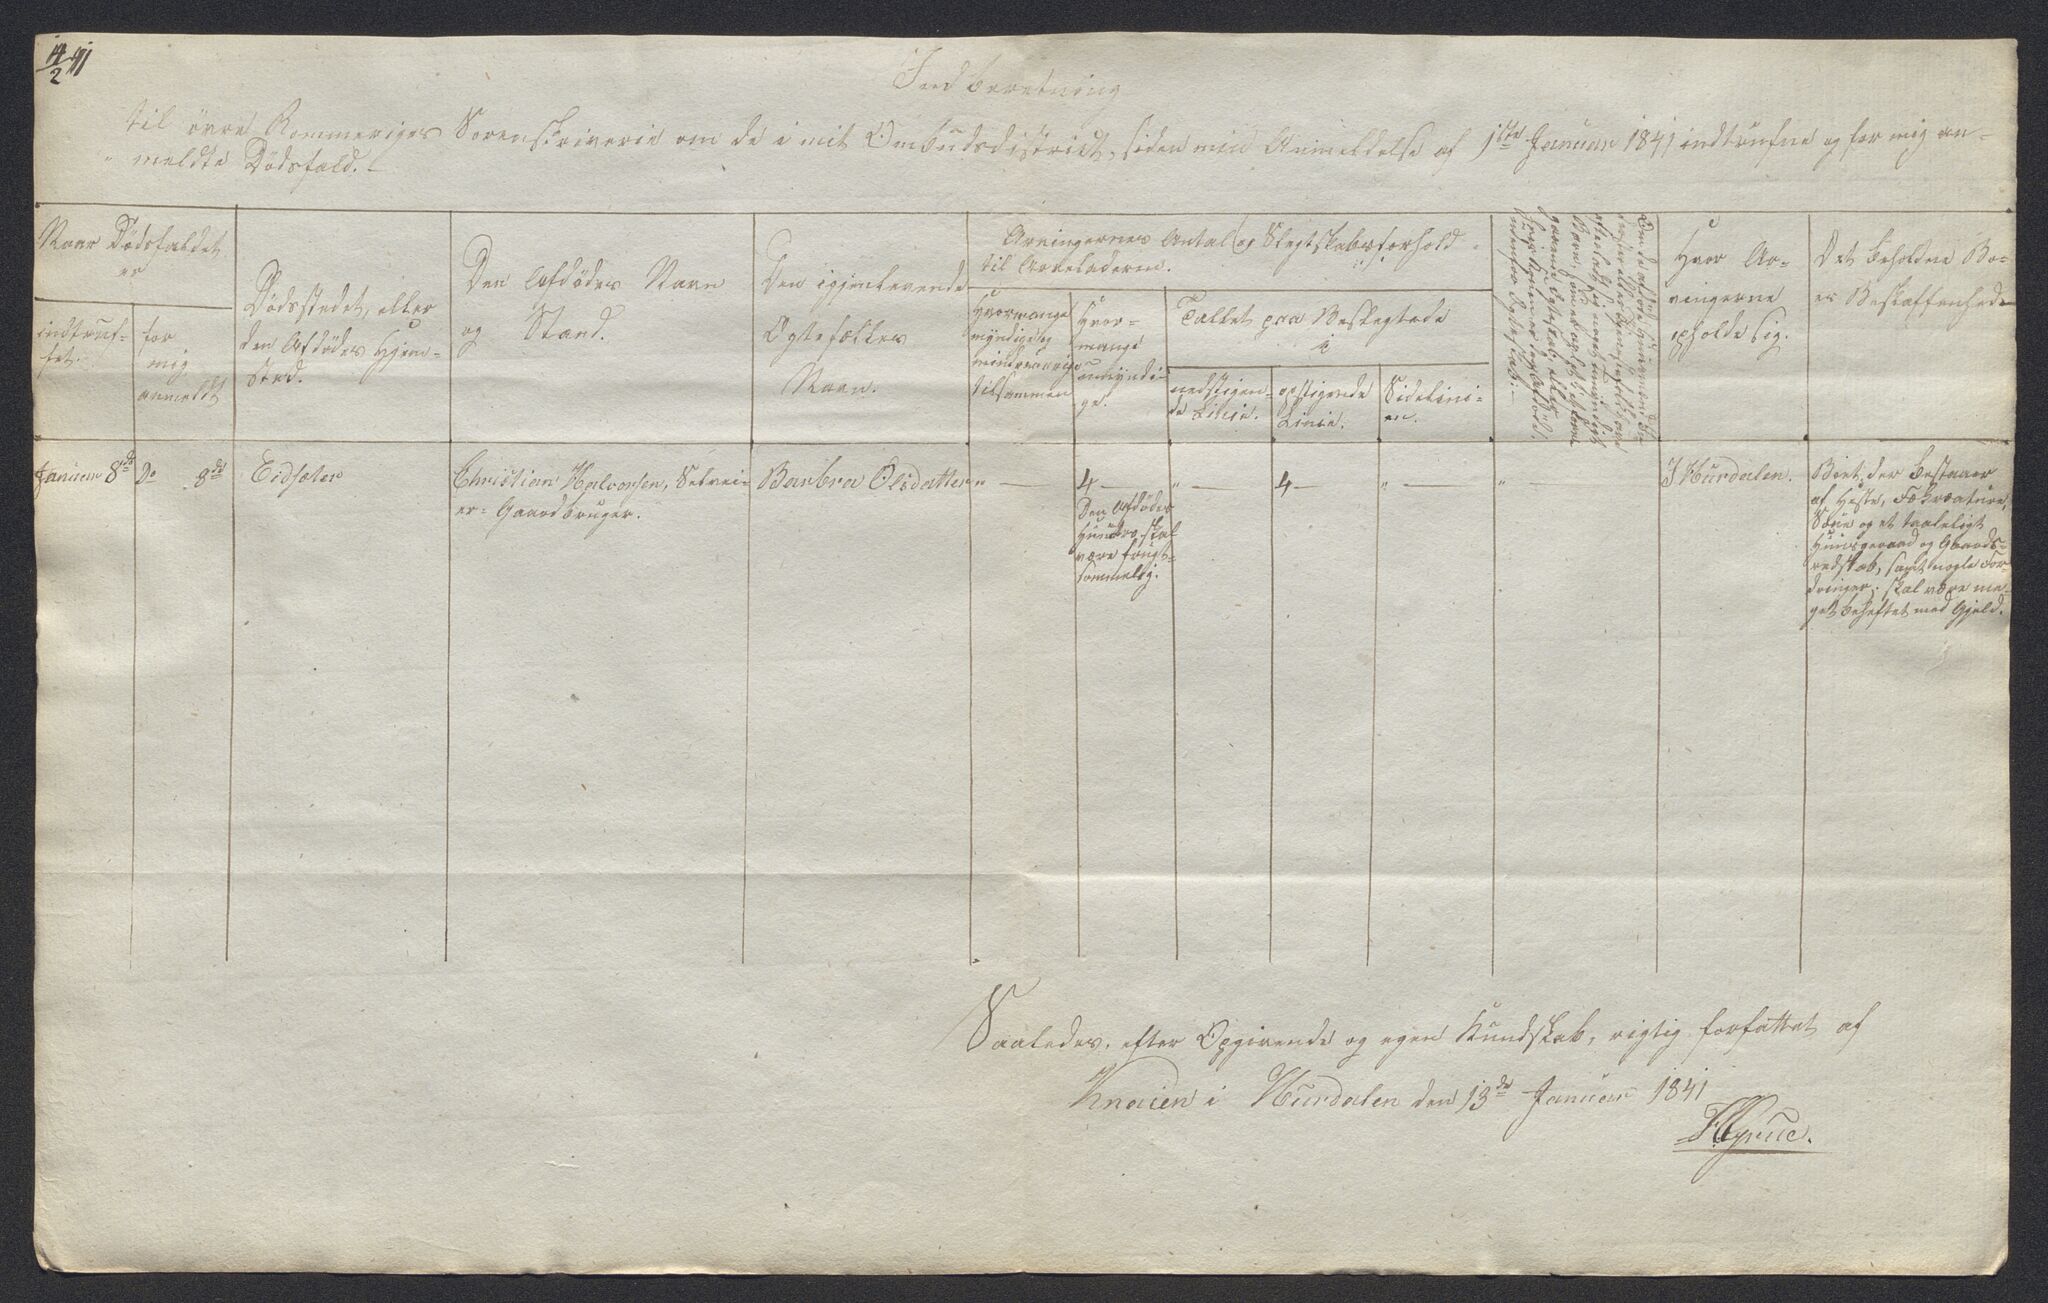 14/2 41
Indberetning
til övre Rommeriges Sorenskriverie om de i mit Ombudsdistrict, siden min Anmeldelse af 1ste Januar 1841 indtrufne og for mig an-
meldte Dödsfald.
Naar Dödsfaldet
er
indtruf-
fet.
for
mig
anmeldt
Dödsstedet, eller
den Afdödes Hjem-
sted.
Den Afdödes Navn
og Stand.
Den igjenlevende
Ægtefælles
Navn.
Arvingernes Antal og Slegtskabsforhold
til Arveladeren.
Hvormange
myndige og
mindreaarige
tilsammen
Hvor-
mange
umyndi-
ge.
Tallet paa Beslegtede
i
nedstigen-
de Linie.
opstigende
Linie.
Sidelini-
en.
Hvor Ar-
vingerne
opholde sig.
Det beholdne Bo-
es Beskaffenhed
Januar 8de
Do 8de
Eidsæter
Christian Halvorsen, Selvei-
er-Gaardbruger.
Barbra Olsdatter
" —
4 —
Den Afdödes
Hustru skal
være frugt-
sommelig.
" —
4 —
" —
" —
I Hurdalen.
Boet, der bestaaer
af Heste, Fækreature,
og et taaleligt
Huusgeraad og Gaards-
redskab, samt nogle For-
dringer, skal være me-
get beheftet med Gjeld.
Saaledes, efter Opgivende og egen Kundskab, rigtig forfattet af
Knaien i Hurdalen den 13de Januar 1841